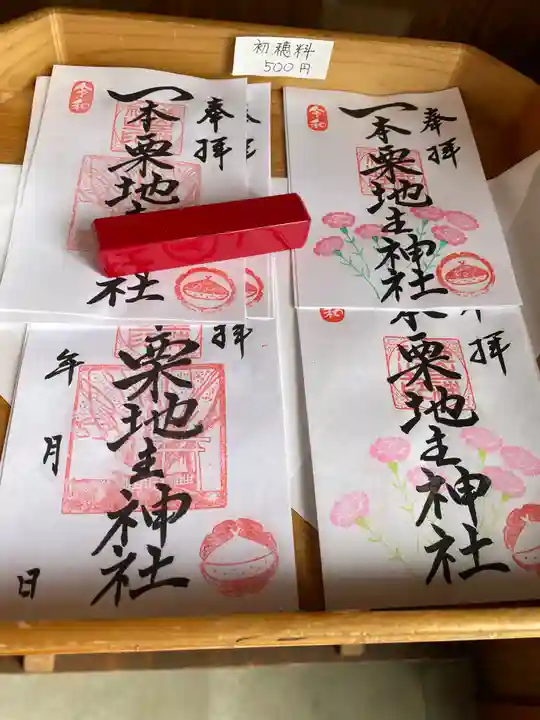 初穂料
500円
令和
奉拝
一本栗地主神社
令和
奉拝
一本栗地主神社
拝
栗地主神社
年
月
日
和
拝
本栗地主神社